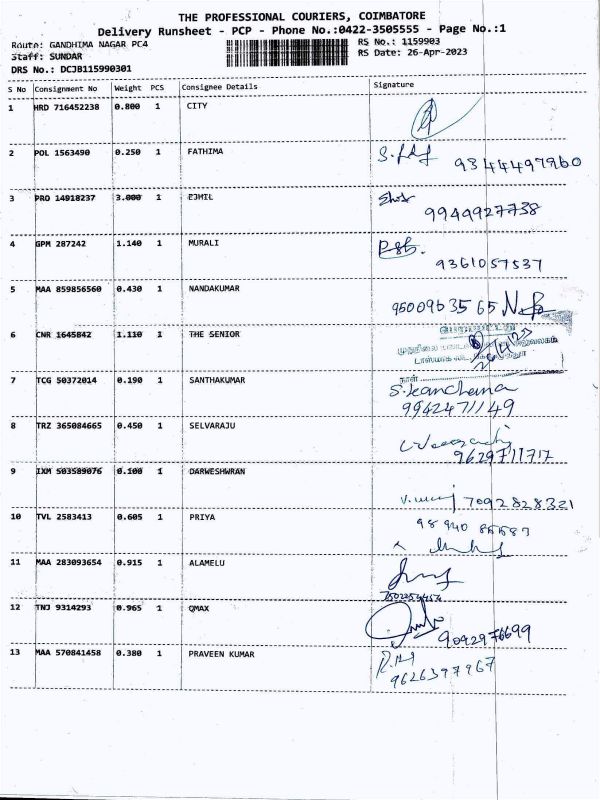 THE PROFESSIONAL COURIERS, COIMBATORE
Delivery Runsheet - PCP - Phone No.:0422-3505555 - Page No.:1
Route: GANDHIMA NAGAR PC4 RS No.: 1159903
Staff: SUNDAR RS Date: 26-Apr-2023
DRS No.: DCJB115990301
S No Consignment No Weight PCS Consignee Details Signature
1 HRD 716452238 0.800 1 CITY
2 POL 1563490 0.250 1 FATHIMA 9344497960
3 PRO 14918237 3.000 1 EJMIL 9944927738
4 GPM 287242 1.140 1 MURALI 9361057537
5 MAA 859856560 0.430 1 NANDAKUMAR 9500963565
6 CNR 1645842 1.110 1 THE SENIOR
நாள்
7 TCG 50372014 0.190 1 SANTHAKUMAR S.kanchana
9942471149
8 TRZ 365084665 0.450 1 SELVARAJU
9629711717
9 IXM 503589076 0.100 1 DARWESHWRAN 7092828321
10 TVL 2583413 0.605 1 PRIYA
11 MAA 283093654 0.915 1 ALAMELU
12 TNJ 9314293 0.965 1 QMAX 9092976699
13 MAA 570841458 0.380 1 PRAVEEN KUMAR
9626397967